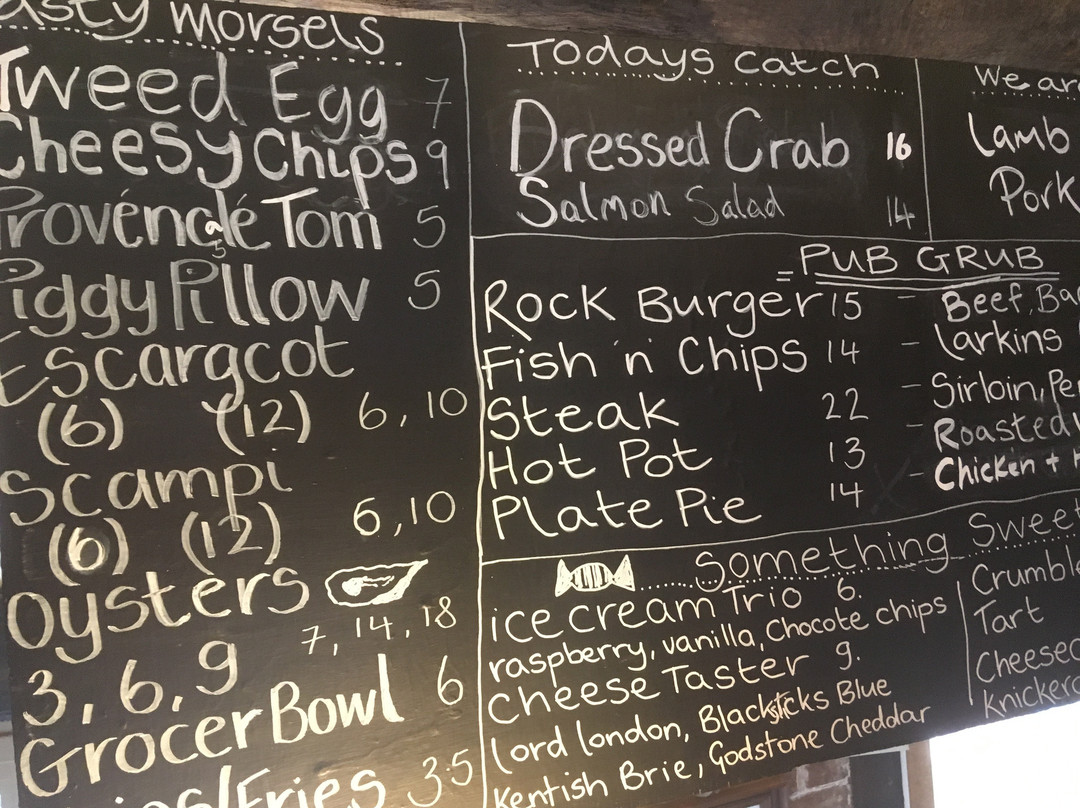 asty morsels
Tweed Egg 7
Cheesy Chips 9
Provéncalé Tom 5
Piggy Pillow 5
Escargcot
(6) (12) 6, 10
Scampi
(6) (12) 6, 10
Oysters
3, 6, 9 7, 14, 18
Grocer Bowl 6
/Fries 3.5
Todays catch
Dressed Crab 16
Salmon Salad 14
We are
Lamb
Pork
PUB GRUB
Rock Burger 15 - Beef, Ba
Fish 'n' Chips 14 - Larkins
Steak 22 - Sirloin, Pe
Hot Pot 13 - Roasted
Plate Pie 14 - Chicken +
Something Sweet
ice cream Trio 6.
raspberry, vanilla, Chocote chips
Cheese Taster 9.
Lord london, Blacksticks Blue
Kentish Brie, Godstone Cheddar
Crumble
Tart
Cheesec
Knickerc